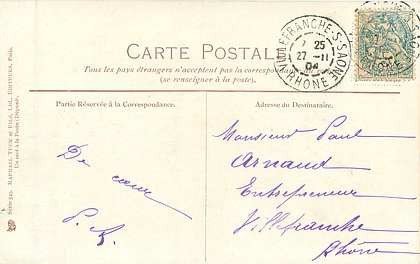 CARTE POSTALE
Tous les pays étrangers n'acceptent pas la correspondance
(se renseigner à la poste).
VILLEFRANCHE-S-SAONE
7 25
27 -11
04
RHONE
Partie Réservée à la Correspondance.
Adresse du Destinataire.
De cœur
Monsieur Paul
Arnaud
Entrepreneur
Villefranche
Rhône
Série 540. RAPHAEL TUCK ET FILS, Ltd, EDITEURS, Paris.
Un mot à la Poste (Déposé).